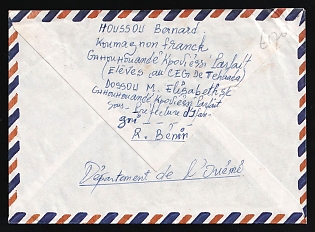 HOUSSOU Bernard
Koumagnon franck
GNHOUHOUANDE Kpodiessi Parfait
Elèves au CEG De Tchaada
DOSSOU M. Elisabeth
GNHOUHOUANDE Kpodiessi Parfait
Sous-Préfecture d'Ifan-
gni
R. Bénin
Département de l'Ouémé